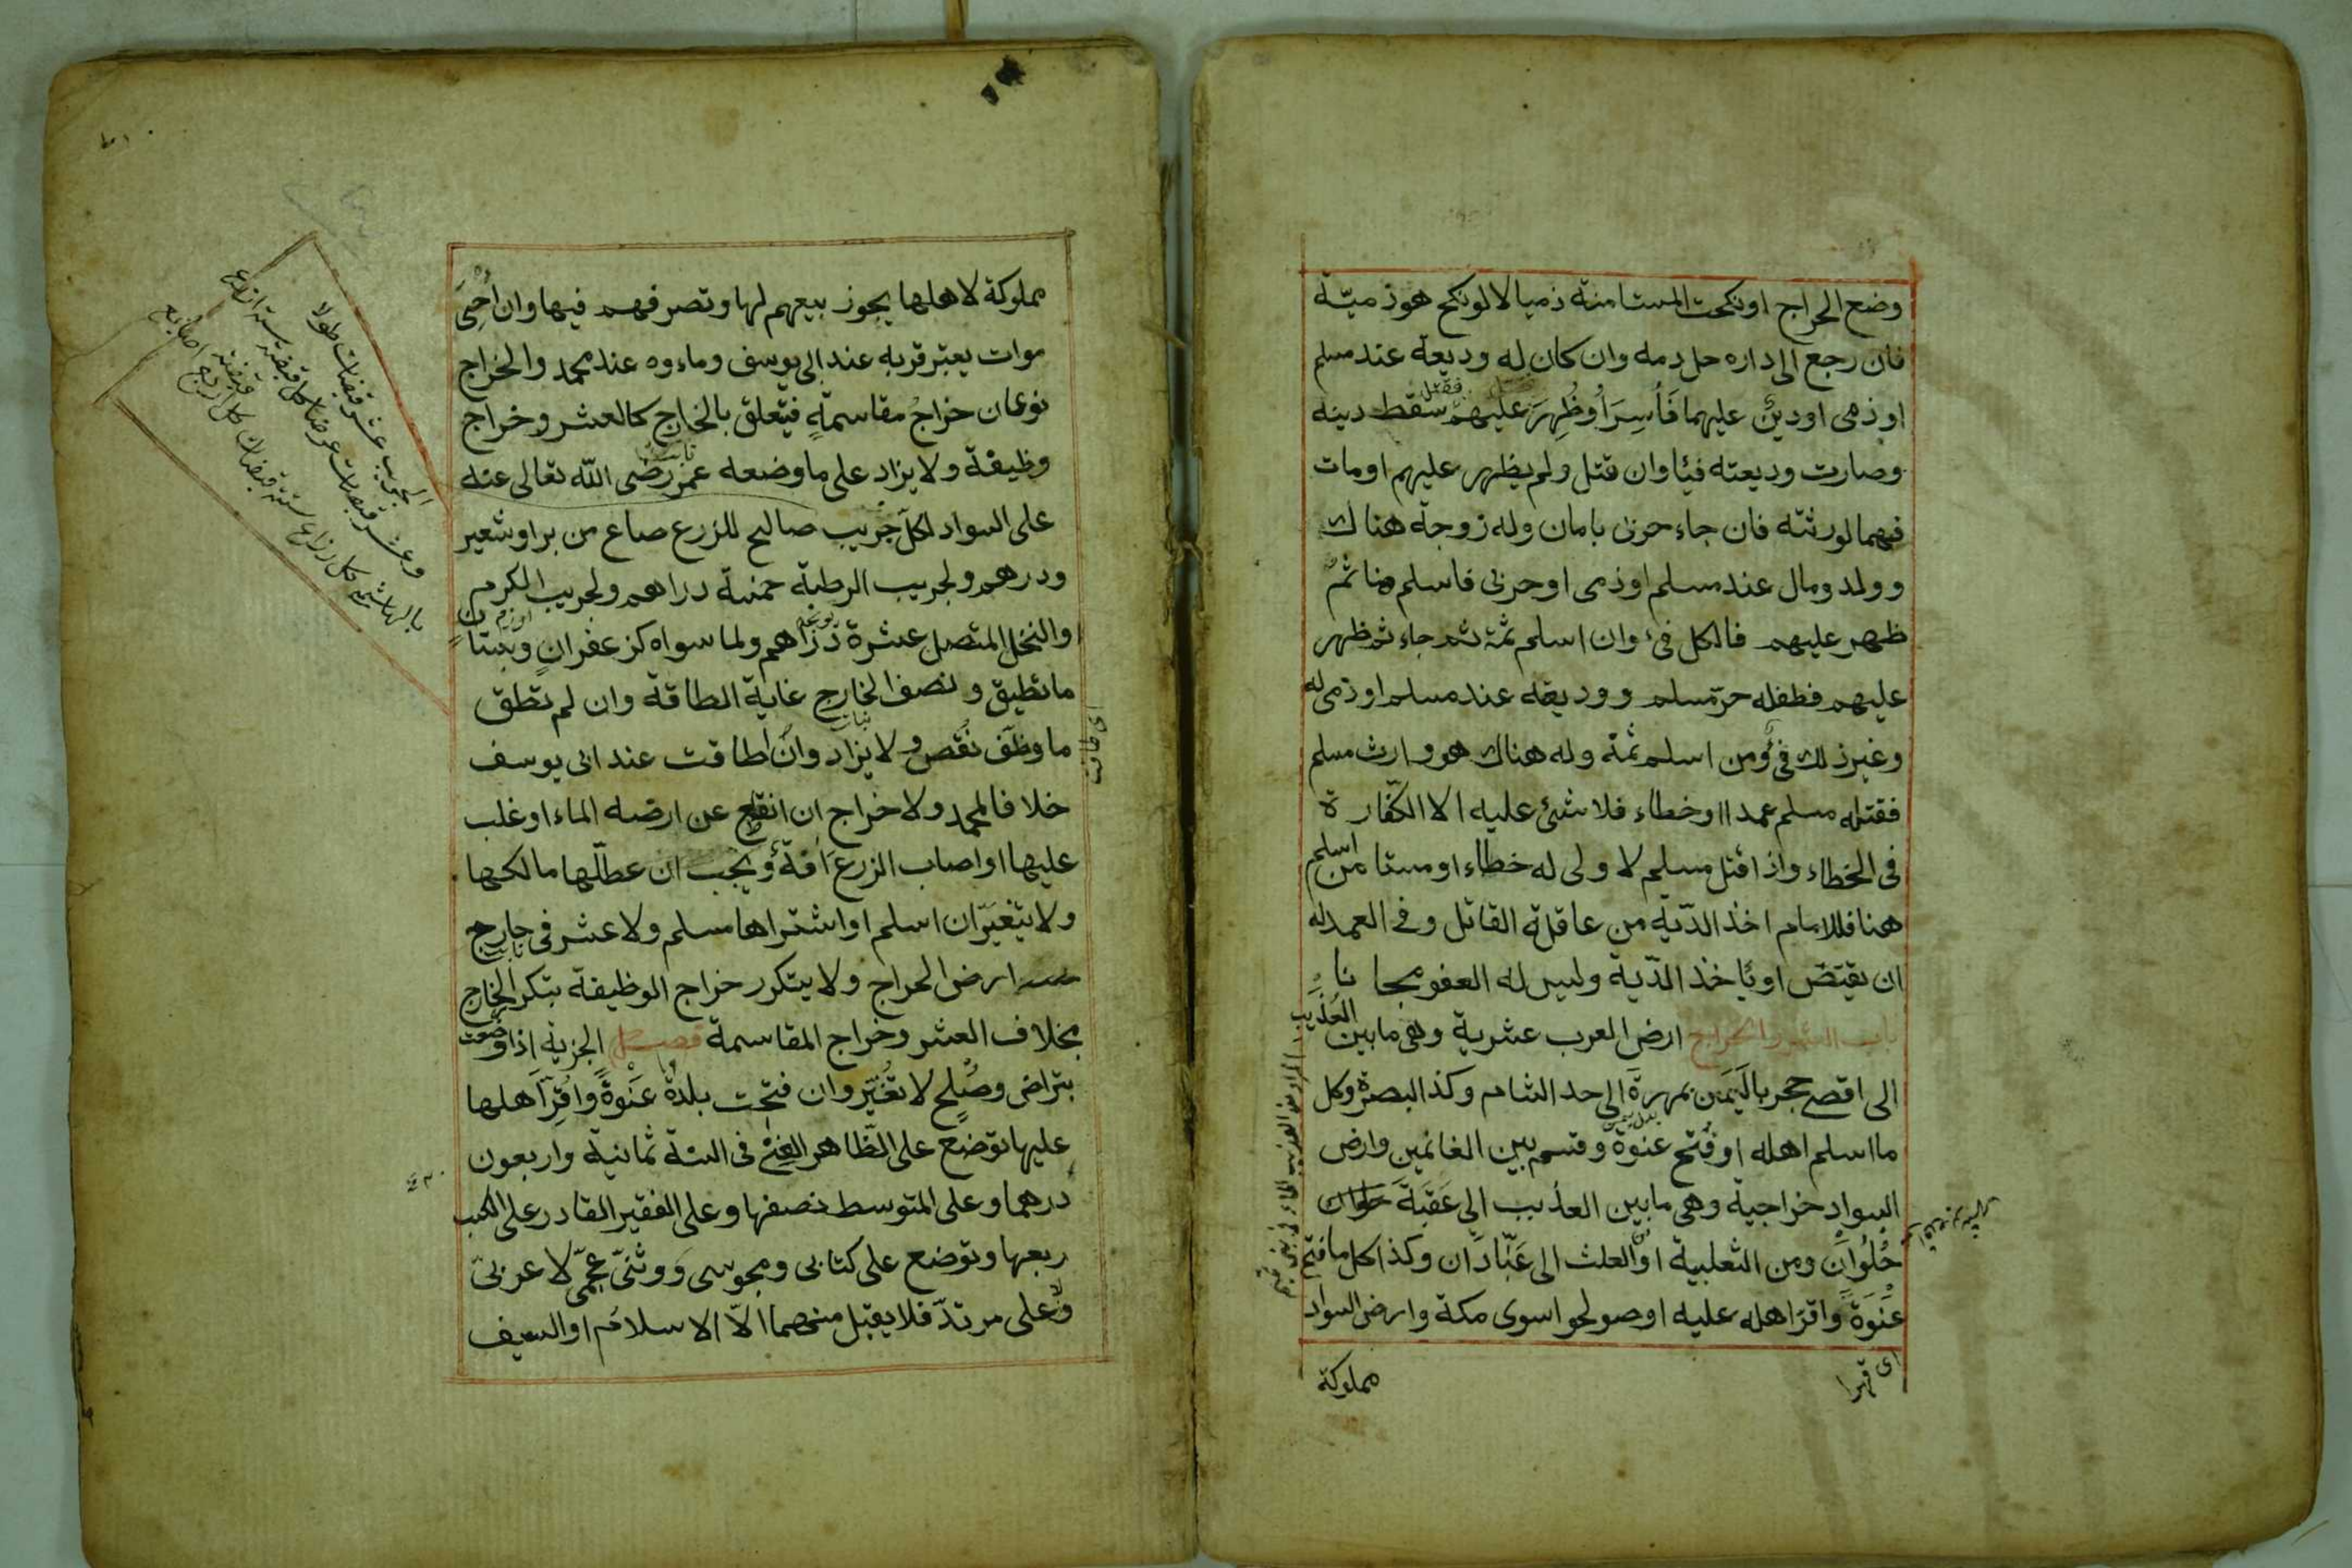 وضع الخراج او نكحت المستامنة ذميا لا لو نكح هو ذميّة
فان رجع الى داره حل دمه وان كان له وديعة عند مسلم
او ذمى او دينٌ عليهما فَأُسِرَ أوظُهِرَ عليهم فقتل سقط دينه
وصارت وديعته فيئا وان قتل ولم يظهر عليهم او مات
فهما لورثته فان جاء حربى بامان وله زوجة هناك
وولد ومال عند مسلم او ذمى او حربى فاسلم هنا ثم
ظهر عليهم فالكل فىء وان اسلم ثمة ثم جاء ثم ظهر
عليهم فطفله حرّ مسلم ووديعة عند مسلم او ذمى له
وغير ذلك فىء ومن اسلم ثمة وله هناك هو وارث مسلم
فقتله مسلم عمدا او خطاء فلا شئ عليه الا الكفّارة
فى الخطاء واذا قتل مسلم لا ولى له خطاء او مستامن اسلم
هنا فللامام اخذ الدّية من عاقلة القاتل وفى العمد له
ان يقتصّ او ياخذ الدّية وليس له العفو مجانا
باب العشر والخراج ارض العرب عشرية وهى ما بين العُذَيب
الى اقصى حجر باليَمَن بمهرةَ الى حد الشام وكذا البصرة وكل
ما اسلم اهله او فُتح عنوة وقسم بين الغانمين وارض
السواد خراجية وهى ما بين العذيب الى عَقَبَة حلوان
حُلْوَانَ ومن الثعلبية او العلث الى عَبّادَان وكذا كل ما فتح
عَنْوَةً واقرّ اهله عليه او صولحوا سوى مكة وارض السواد
اى قهرا
مملوكة
مملوكة لاهلها يجوز بيعهم لها وتصرفهم فيها وان اُحْيِىَ
موات يعتبر قربه عند ابى يوسف وماءوه عند محمد والخراج
نوعان خراجُ مقاسمةٍ فيتعلق بالخارج كالعشر وخراج
وظيفة ولا يزاد على ما وضعه عمر رضى الله تعالى عنه
على السواد لكل جَريب صالح للزرع صاع من بر او شعير
ودرهم ولجريب الرطبة خمسة دراهم ولجريب الكرم
والنخل المتصل عشرة دراهم ولما سواه كزعفران وبستان
ما تطيق ونصف الخارج غاية الطاقة وان لم تطق
ما وظّف نُقص ولا يزاد وان اطاقت عند ابى يوسف
خلافا لمحمد ولا خراج ان انقطع عن ارضه الماء او غلب
عليها او اصاب الزرعَ آفةٌ ويجب ان عطّلها مالكها
ولا يتغيّر ان اسلم او اشتراها مسلم ولا عشر فى خارج
ارض الخراج ولا يتكرر خراج الوظيفة بتكرر الخارج
بخلاف العشر وخراج المقاسمة فصل الجزية اذا وضعت
بتراض وصُلح لا تُغيّر وان فتحت بلدة عَنْوَةً واُقِرّ اهلها
عليها توضع على الظّاهر الغنى فى السنة ثمانية واربعون
درهما وعلى المتوسط نصفها وعلى الفقير القادر على الكسب
ربعها وتوضع على كتابى ومجوسى ووثنىّ عجمىّ لا عربىّ
ولا على مرتدّ فلا يقبل منهما الّا الاسلام او السيف
الجريب عشر قصبات طولا
وعشر قصبات عرضا كل قصبة ستة اذرع